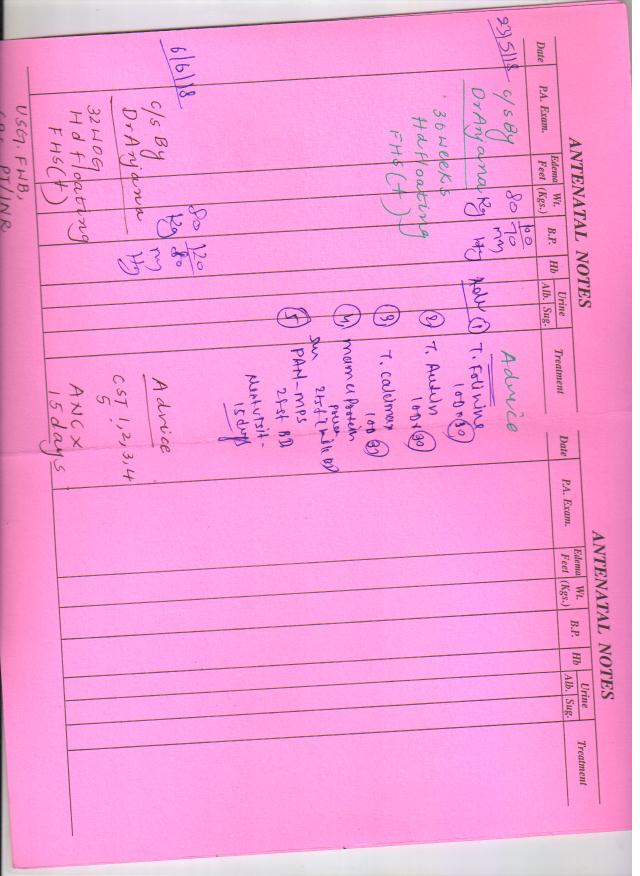 ANTENATAL NOTES
Date P.A. Exam. Edema Feet Wt. (Kgs.) B.P. Hb Urine Alb. Sug. Treatment
23/5/18
C/s By
Dr Anjana
30 weeks
Hd floating
FHS (+)
80
Kg
100
70
mm
Hg
Advice
Adv
① T. Follinine
100 x 30
② T. Autrin
100 x 30
③ T. calcimax
100
④ mama Protein
⑤
PAN-MPS
2tsf BD
Next visit -
15 days
6/6/18
C/s By
Dr Anjana
32 WOG
Hd floating
FHS (+)
USG. FWB,
PT/INR
80
Kg
120
80
mm
Hg
Advice
CST 1, 2, 3, 4
5.
ANC X
15 days
ANTENATAL NOTES
Date P.A. Exam. Edema Feet Wt. (Kgs.) B.P. Hb Urine Alb. Sug. Treatment